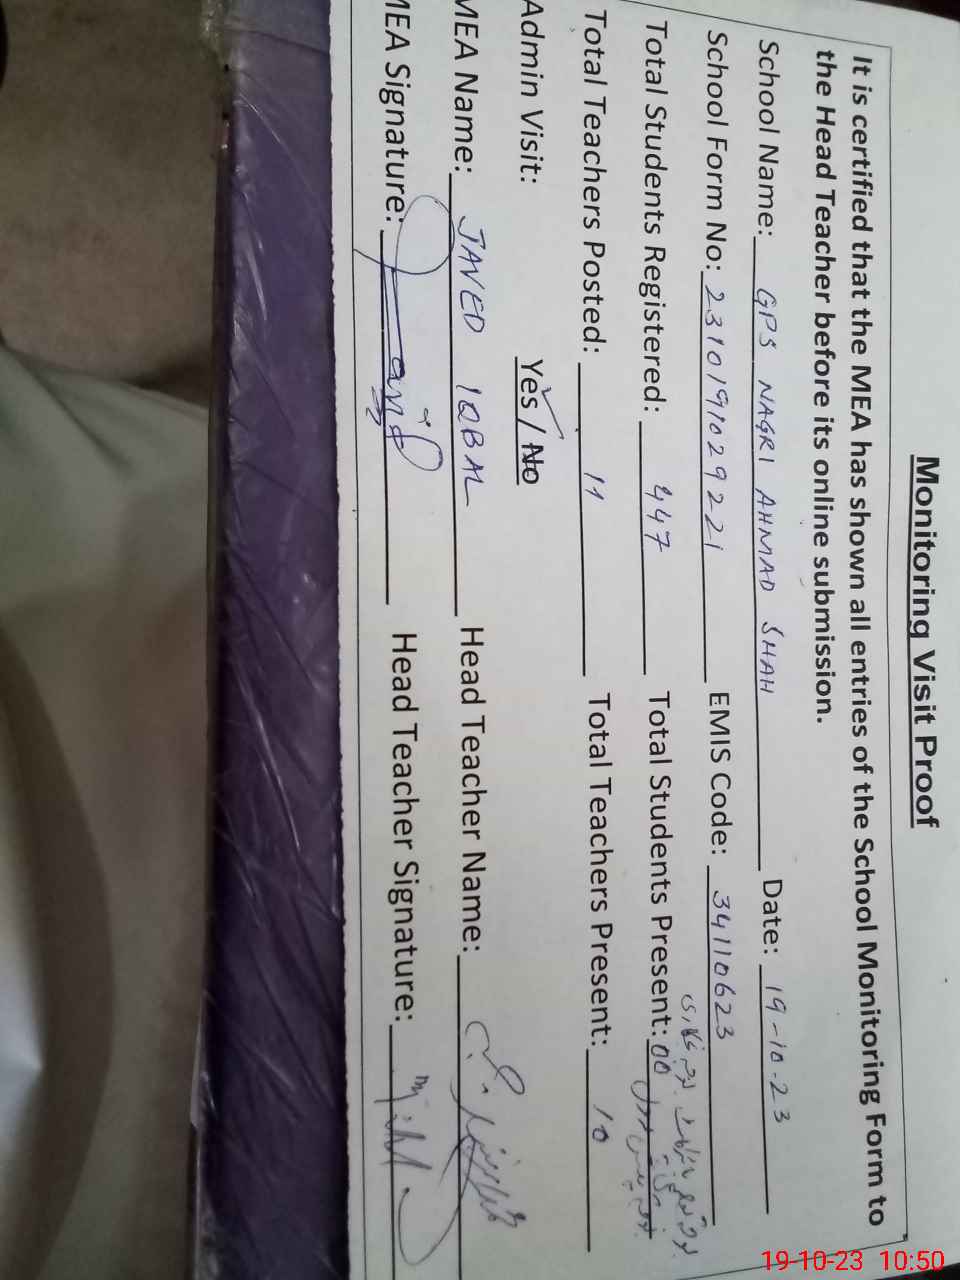 Monitoring Visit Proof
It is certified that the MEA has shown all entries of the School Monitoring Form to
the Head Teacher before its online submission.
School Name: GPS NAGRI AHMAD SHAH Date: 19-10-23
School Form No: 2310191029221 EMIS Code: 34110623
Total Students Registered: 447 Total Students Present: 00
Total Teachers Posted: 11 Total Teachers Present: 10
Admin Visit: Yes / No
MEA Name: JAVED IQBAL Head Teacher Name:
MEA Signature: Head Teacher Signature:
19-10-23 10:50